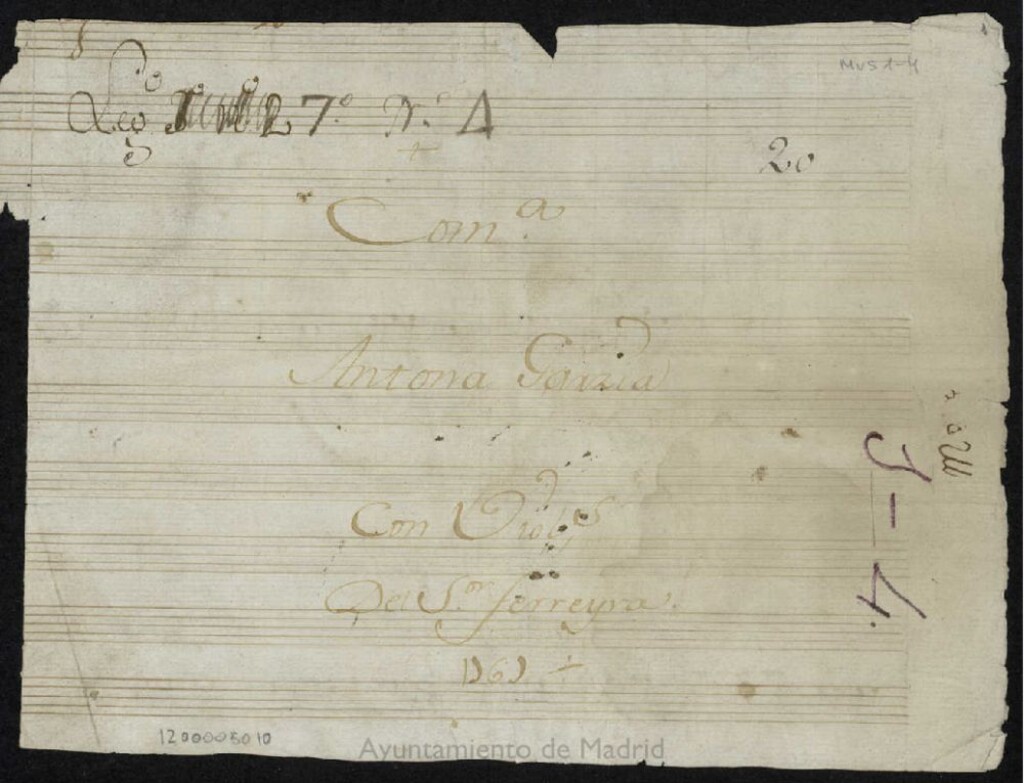 MUS 1-4
Leg.º 7.º N.º 4
20
Com.ª
Antona Garzia
Con Viol.s
Del S.or ferreyra.
1769
1-4.
1200005010
Ayuntamiento de Madrid